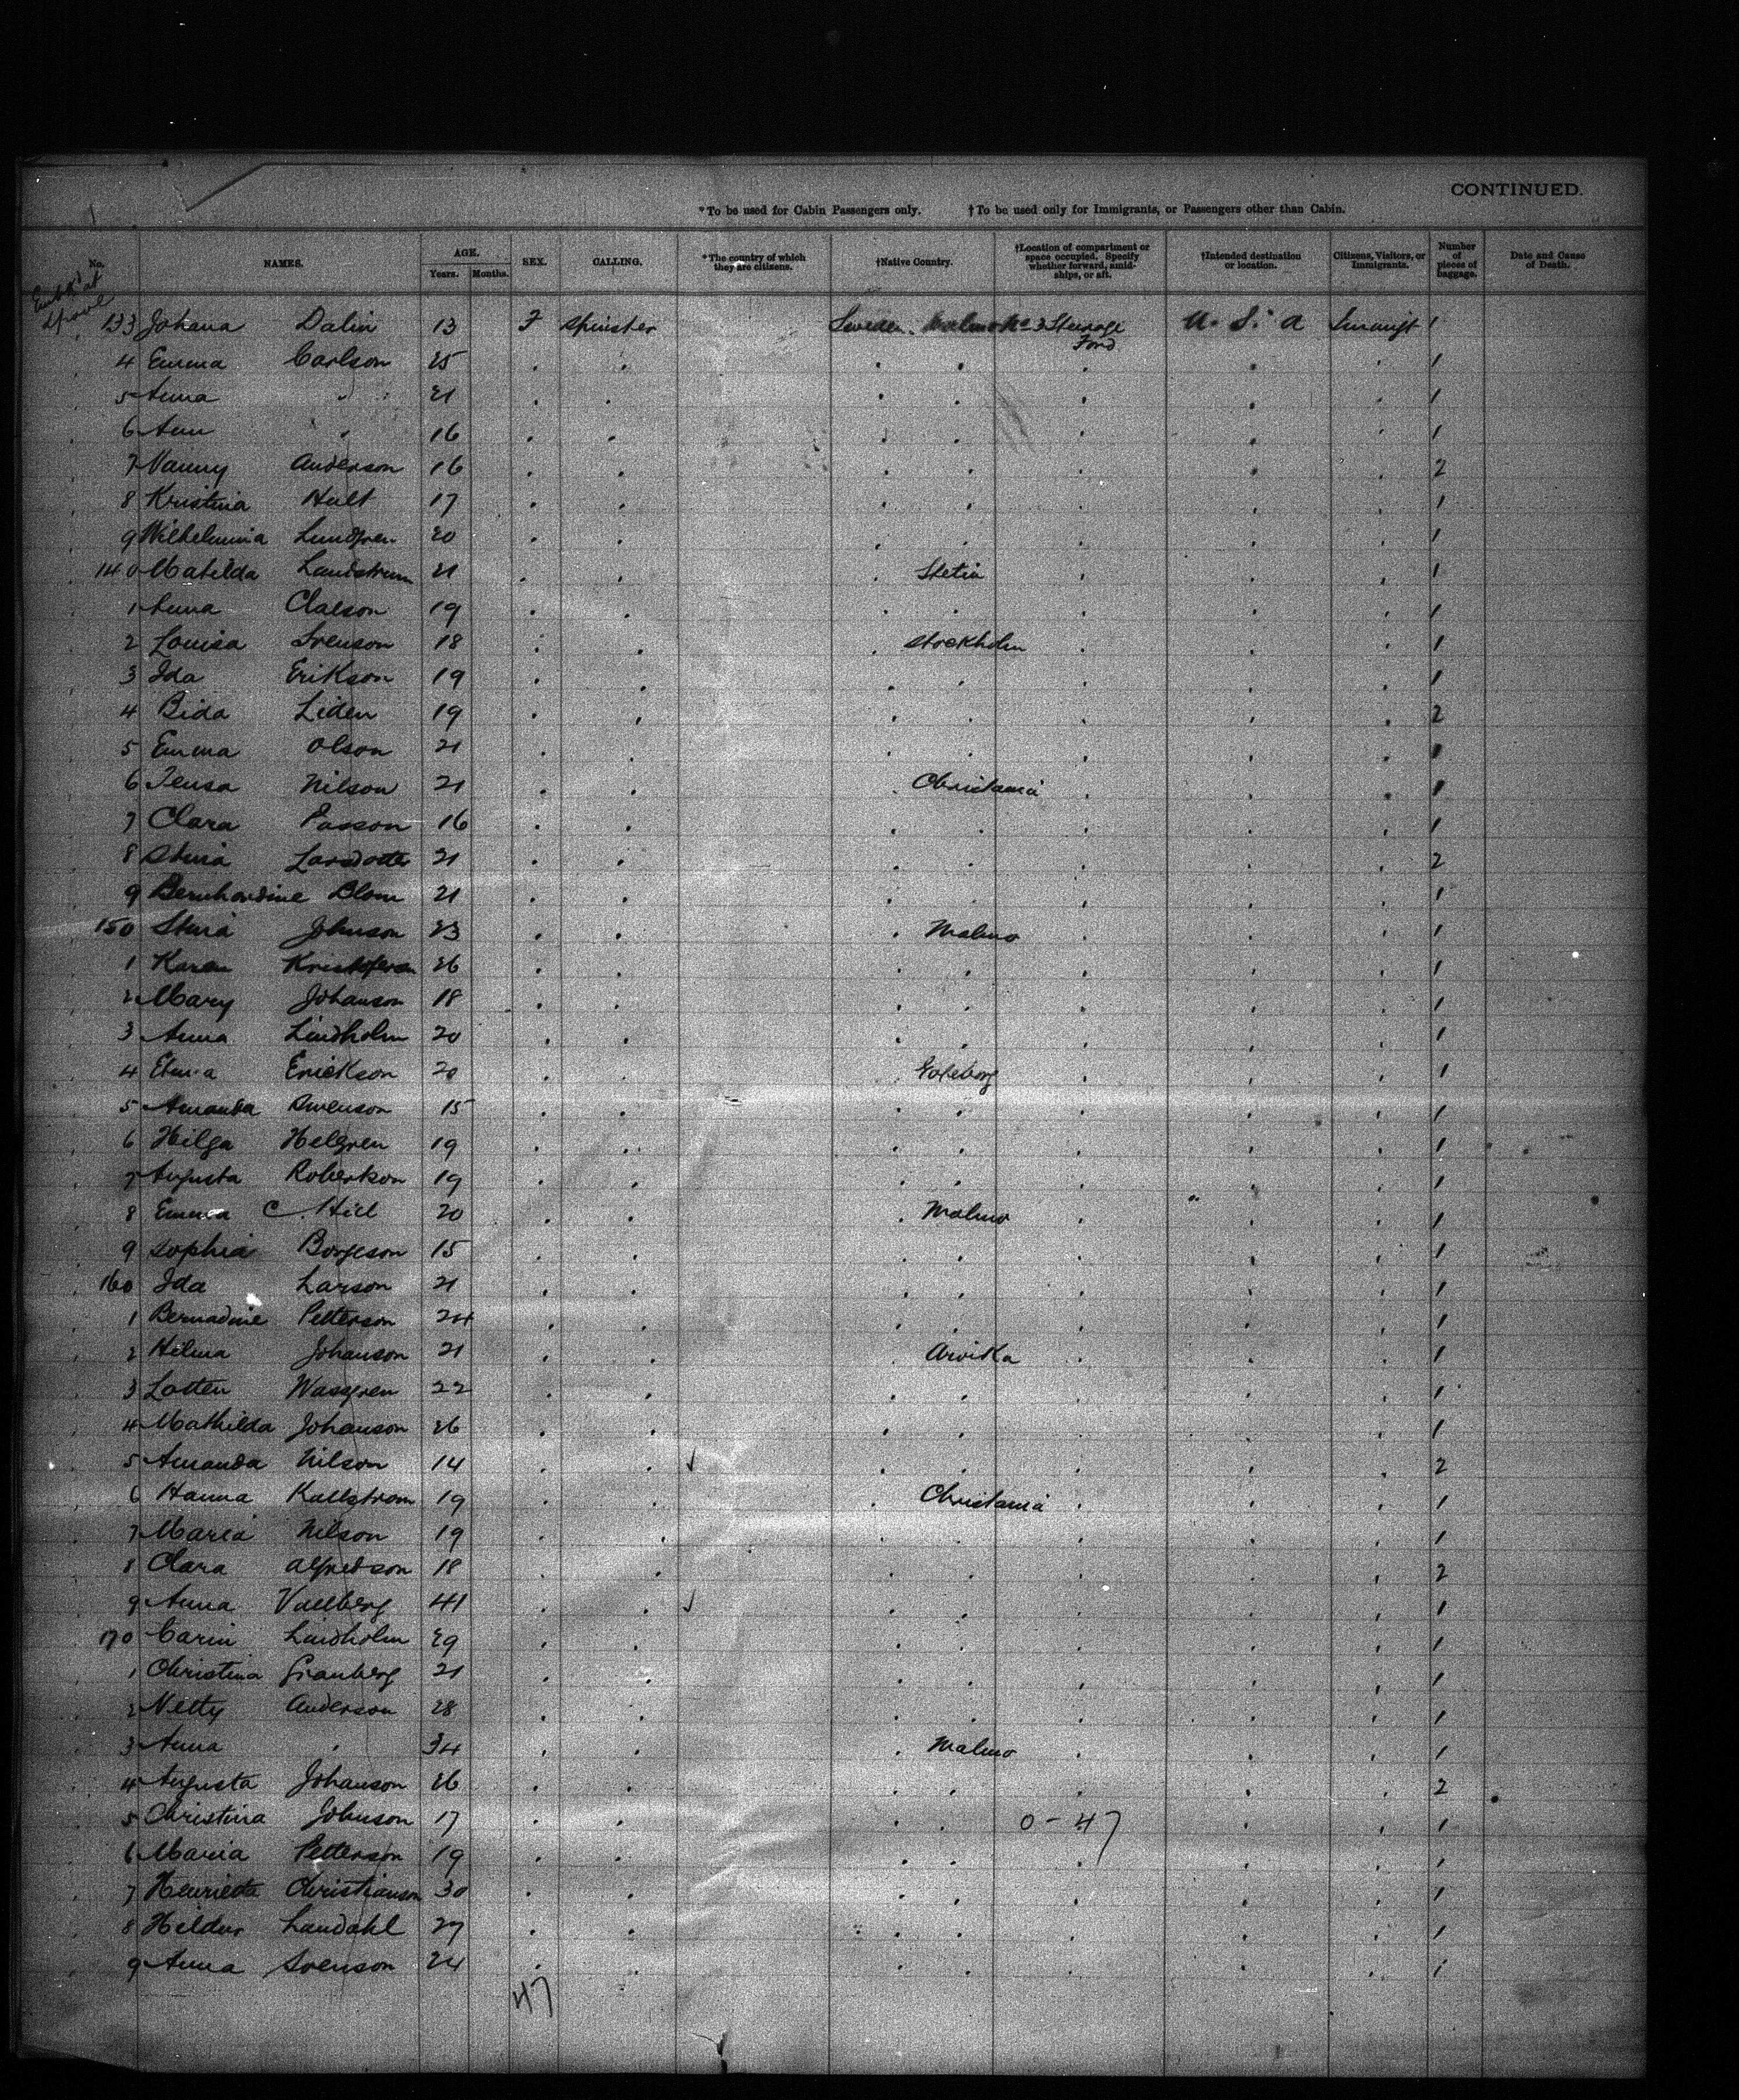 CONTINUED.
*To be used for Cabin Passengers only. †To be used only for Immigrants, or Passengers other than Cabin.
No. NAMES. AGE. Years. Months. SEX. CALLING. *The country of which they are citizens. †Native Country. †Location of compartment or space occupied. Specify whether forward, amidships, or aft. †Intended destination or location. Citizens, Visitors, or Immigrants. Number of pieces of baggage. Date and Cause of Death.
Emb'k'd at
133 Johana Dalin 13 F Spinster Sweden. Malmo No 3 Steerage U. S. A 1
Forw
4 Emma Carlson 25 . . . . . . . 1
5 Anna " 21 . . . . . . . 1
6 Ann " 16 . . . . . . . 1
7 Nanny Anderson 16 . . . . . . . 2
8 Kristina Hult 17 . . . . . . . 1
9 Wilhelmina Lundgren 20 . . . . . . . 1
140 Matilda Landstrum 21 . . . Stetin . . . 1
1 Anna Claeson 19 . . . . . . . 1
2 Louisa Svenson 18 . . . Stockholm . . . 1
3 Ida Erikson 19 . . . . . . . 1
4 Bida Liden 19 . . . . . . . 2
5 Emma Olson 21 . . . . . . . 1
6 Nilson 21 . . . Christania . . . 1
7 Clara 16 . . . . . . . 1
8 Stina Larsdotter 21 . . . . . . . 2
9 Bernhardine Blom 21 . . . . . . . 1
150 Stina Johnson 23 . . . Malmo . . . 1
1 Karen Kristoferson 26 . . . . . . . 1
2 Mary Johanson 18 . . . . . . . 1
3 Anna Lindholm 20 . . . . . . . 1
4 Erickson 20 . . . Goteborg . . . 1
5 Amanda Swenson 15 . . . . . . . 1
6 Hilga Helgren 19 . . . . . . . 1
7 Augusta Robertson 19 . . . . . . . 1
8 Emma C. Hill 20 . . . Malmo . . . 1
9 Sophia Borgeson 15 . . . . . . . 1
160 Ida Larson 21 . . . . . . . 1
1 Bernadine Petterson 24 . . . . . . . 1
2 Hilma Johanson 21 . . . Arvika . . . 1
3 Lotten Wassgren 22 . . . . . . . 1
4 Mathilda Johanson 26 . . . . . . . 1
5 Amanda Nilson 14 . . ✓ . . . . . 2
6 Hanna Kallstrom 19 . . . Christania . . . 1
7 Maria Nilson 19 . . . . . . . 1
8 Clara Alfredson 18 . . . . . . . 2
9 Anna Vallberg 41 . . ✓ . . . . . 1
170 Carin Lindholm 29 . . . . . . . 1
1 Christina Granberg 21 . . . . . . . 1
2 Netty Anderson 28 . . . . . . . 1
3 Anna " 34 . . . Malmo . . . 1
4 Augusta Johanson 26 . . . . . . . 2
5 Christina Johnson 17 . . . . 0-47 . . 1
6 Maria Petterson 19 . . . . . . . 1
7 Henrietta Christianson 30 . . . . . . . 1
8 Hildur Landahl 27 . . . . . . . 1
9 Anna Svenson 24 . . . . . . . 1
47